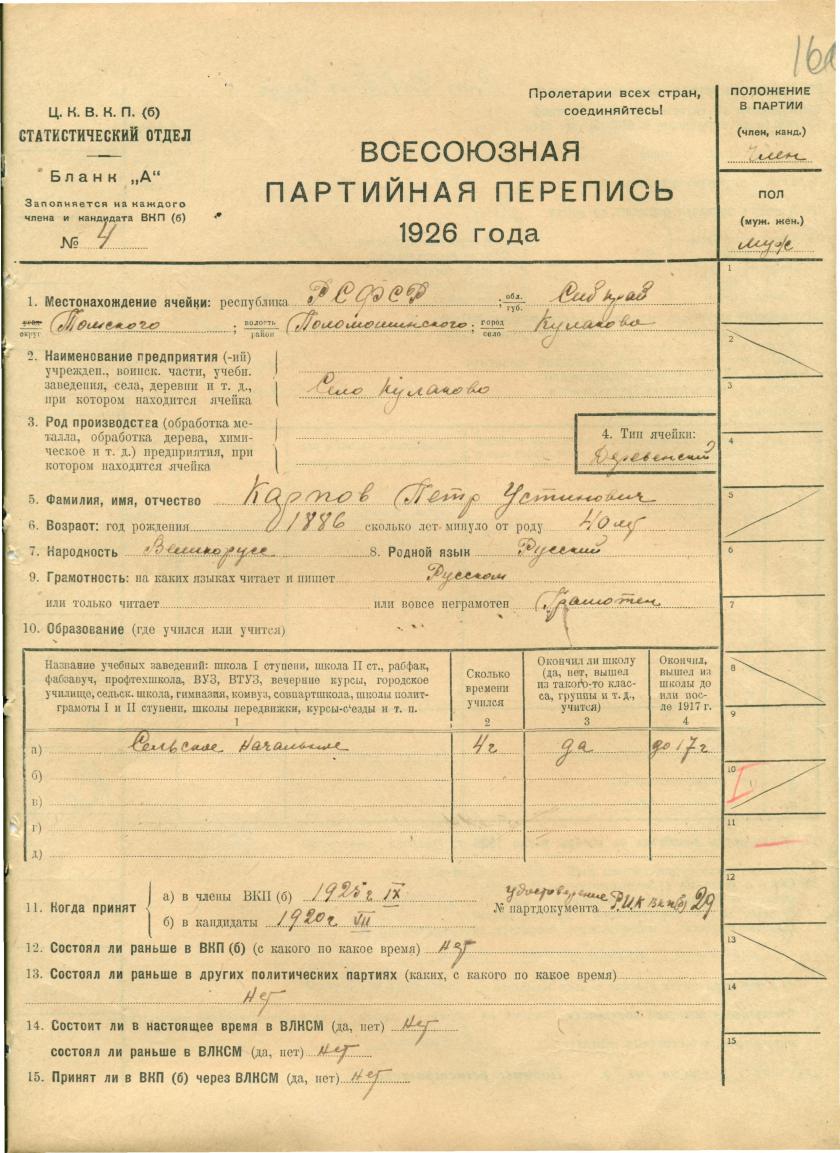 16а
Ц. К. В. К. П. (б)
СТАТИСТИЧЕСКИЙ ОТДЕЛ
Бланк „А“
Заполняется на каждого
члена и кандидата ВКП (б)
№ 4
Пролетарии всех стран,
соединяйтесь!
ВСЕСОЮЗНАЯ
ПАРТИЙНАЯ ПЕРЕПИСЬ
1926 года
ПОЛОЖЕНИЕ
В ПАРТИИ
(член, канд.)
Член
ПОЛ
(муж. жен.)
муж
1. Местонахождение ячейки: республика РСФСР ; обл. губ. Сибкрай
уезд округ Томского ; волость район Поломошинского ; город село Кулаково
2. Наименование предприятия (-ий)
учрежден., воинск. части, учебн.
заведения, села, деревни и т. д.,
при котором находится ячейка
Село Кулаково
3. Род производства (обработка ме-
талла, обработка дерева, хими-
ческое и т. д.) предприятия, при
котором находится ячейка
4. Тип ячейки:
Деревенский
5. Фамилия, имя, отчество Карпов Петр Устинович
6. Возраст: год рождения 1886 сколько лет минуло от роду 40 лет
7. Народность Великорусс 8. Родной язык Русский
9. Грамотность: на каких языках читает и пишет Русском
или только читает или вовсе неграмотен Грамотен
10. Образование (где учился или учится)
Название учебных заведений: школа I ступени, школа II ст., рабфак,
фабзавуч, профтехшкола, ВУЗ, ВТУЗ, вечерние курсы, городское
училище, сельск. школа, гимназия, комвуз, совпартшкола, школы полит-
грамоты I и II ступени, школы передвижки, курсы-с'езды и т. п.
1
Сколько
времени
учился
2
Окончил ли школу
(да, нет, вышел
из такого-то клас-
са, группы и т. д.,
учится)
3
Окончил,
вышел из
школы до
или пос-
ле 1917 г.
4
а) Сельское начальное 4 г да до 17 г
б)
в)
г)
д)
11. Когда принят
а) в члены ВКП (б) 1925 г IX
б) в кандидаты 1920 г VII
удостоверение
№ партдокумента РИК ВКП(б) 29
12. Состоял ли раньше в ВКП (б) (с какого по какое время) нет
13. Состоял ли раньше в других политических партиях (каких, с какого по какое время)
нет
14. Состоит ли в настоящее время в ВЛКСМ (да, нет) нет
состоял ли раньше в ВЛКСМ (да, нет) нет
15. Принят ли в ВКП (б) через ВЛКСМ (да, нет) нет
1
2
3
4
5
6
7
8
9
10
I
11
12
13
14
15